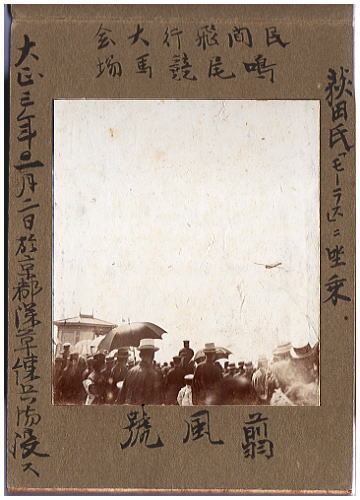 民間飛行大会
鳴尾競馬場
荻田氏「モーラス」ニ坐乗
翦風號
大正三年一月二日於京都深草練兵場没ス